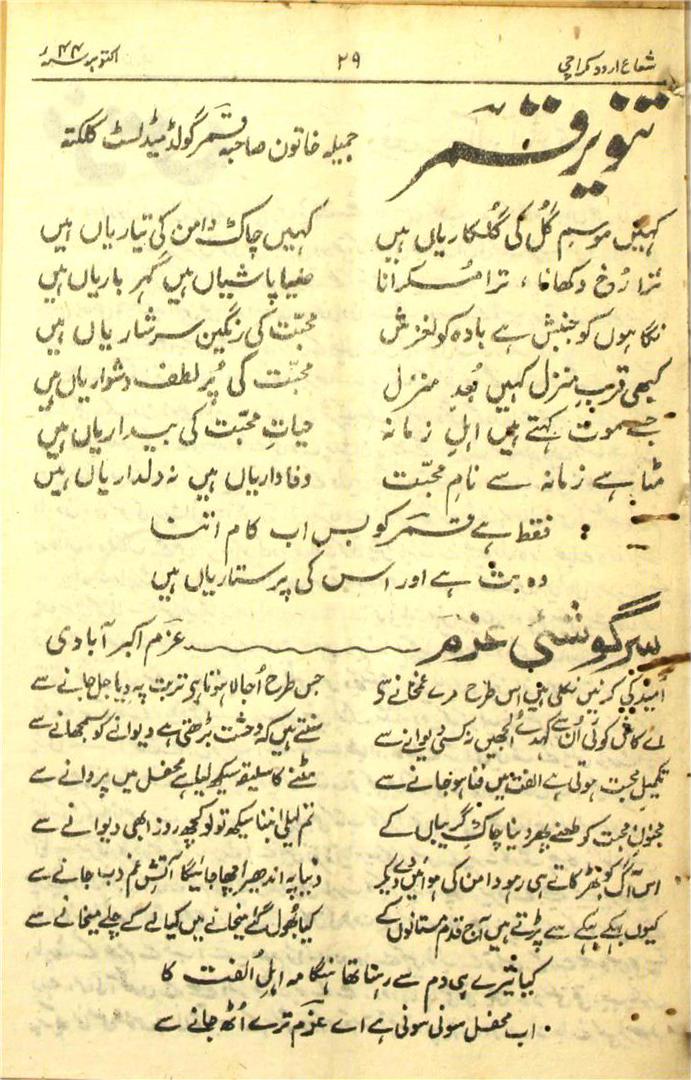 شعاع اردو کراچی ۲۹ اکتوبر سنہ ۴۴ء
تنویرِ قمر
جمیلہ خاتون صاحبہ قمر گولڈ میڈلسٹ کلکتہ
کہیں موسمِ گُل کی گلکاریاں ہیں کہیں چاک دامن کی تیاریاں ہیں
ترا رُخ دکھانا ، ترا مُسکرانا ضیا پاشیاں ہیں گہر باریاں ہیں
نگاہوں کو جنبش ہے بادہ کو لغزش محبّت کی رنگین سرشاریاں ہیں
کبھی قربِ منزل کہیں بُعدِ منزل محبّت کی پُر لطف دشواریاں ہیں
جسے موت کہتے ہیں اہلِ زمانہ حیاتِ محبّت کی بیداریاں ہیں
مٹا ہے زمانہ سے نامِ محبّت وفاداریاں ہیں نہ دلداریاں ہیں
فقط ہے قمر کو بس اب کام اتنا
وہ بت ہے اور اس کی پرستاریاں ہیں
سرگوشئ عزم عزم اکبر آبادی
امید کی کرنیں نکلی ہیں اس طرح مرے غمخانے سے جس طرح اُجالا ہوتا ہو تربت پہ دِیا جل جانے سے
اے کاش کوئی اُن سے کہدے اُلجھیں نہ کسی دیوانے سے سنتے ہیں کہ وحشت بڑھتی ہے دیوانے کو سمجھانے سے
تکمیلِ محبت ہوتی ہے الفت میں فنا ہو جانے سے مٹنے کا سلیقہ سیکھ لیا ہے محفل میں پروانے سے
مجنونِ محبت کو طعنے پھر دینا چاکِ گریباں کے تم لیلیٰ بننا سیکھ تو لو کچھ روز ابھی دیوانے سے
اس آگ کو بھڑکاتے ہی رہو دامن کی ہوائیں دے دیکر دنیا پہ اندھیرا چھا جائیگا آتشِ غم دب جانے سے
کیوں بہکے بہکے سے پڑتے ہیں آج قدم مستانوں کے کیا بھُول گئے میخانے میں کیا لے کے چلے میخانے سے
کیا تیرے ہی دم سے رہتا تھا ہنگامہ اہلِ اُلفت کا
اب محفل سونی سونی ہے اے عزم ترے اُٹھ جانے سے